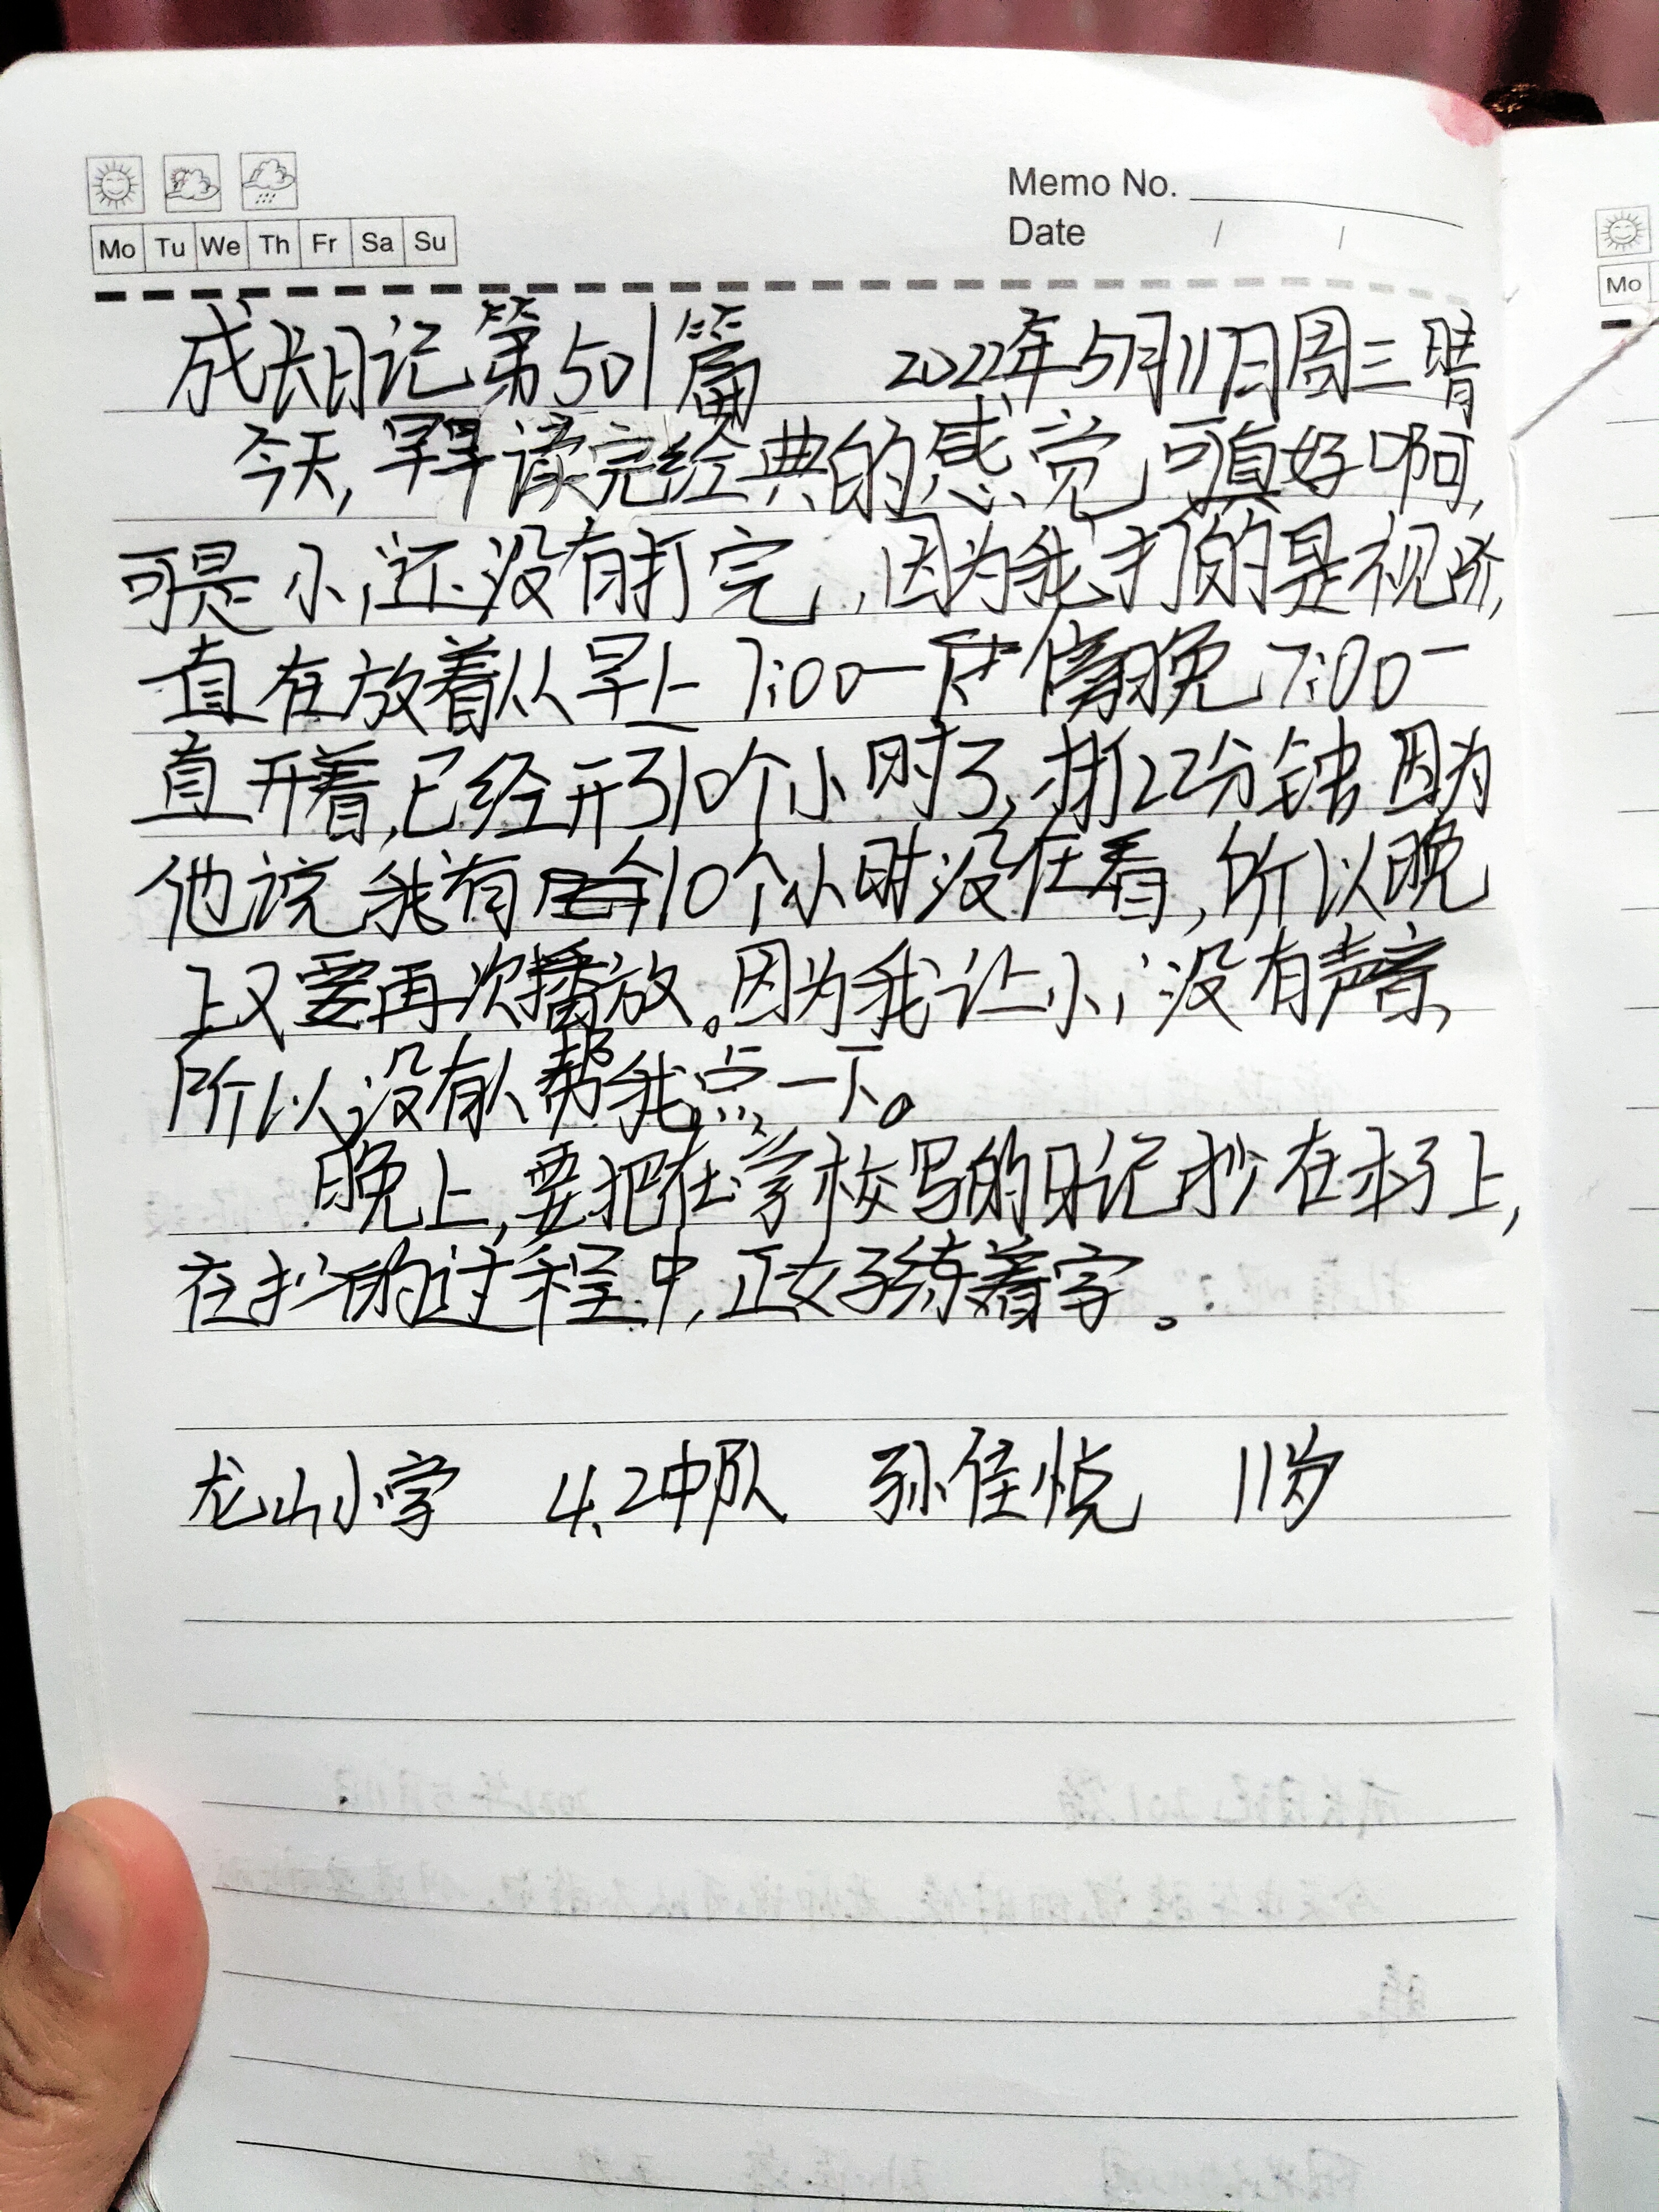 Memo No.
Mo Tu We Th Fr Sa Su
Date / /
Mo
成长日记第501篇 2022年5月11日周三晴
今天,早早读完经典的感觉,可真好啊,
可是小i还没有打完,因为我打的是视阶,
直在放着从早上7:00一 傍晚7:00一
直开着,已经开了10个小时了,才打22分钟,因为
他说我有10个小时没在看,所以晚
上又要再次播放。因为我让小i没有声音,
所以没有人帮我点一下。
晚上,要把在学校写的日记抄在本子上,
在抄的过程中,正好练着字。
龙山小学 4.2中队 孙佳悦 11岁